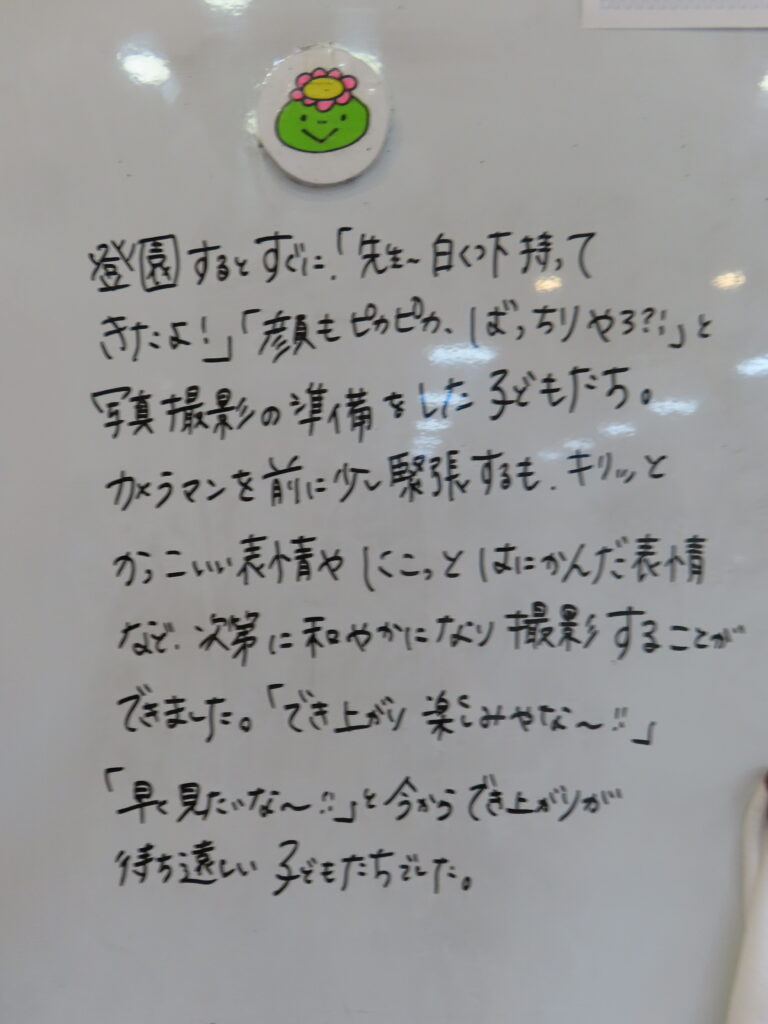 登園するとすぐに、「先生~白くつ下持って
きたよ!」「顔もピカピカ、ばっちりやろ?!」と
写真撮影の準備をした子どもたち。
カメラマンを前に少し緊張するも、キリッと
かっこいい表情や にこっと はにかんだ表情
など、次第に和やかになり撮影することが
できました。「でき上がり楽しみやな~!!」
「早く見たいな~!!」と今からでき上がりが
待ち遠しい子どもたちでした。